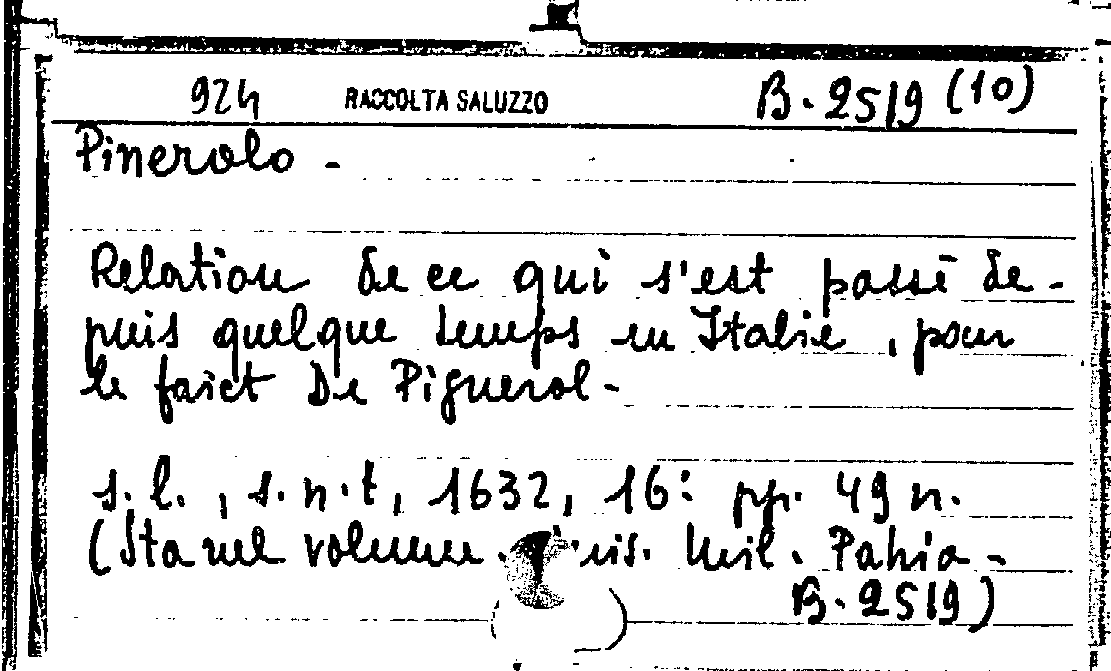 924 RACCOLTA SALUZZO B. 2519 (10)
Pinerolo -
Relation de ce qui s'est passé de-
puis quelque temps en Italie, pour
le faict De Pignerol -
s. l., s. n. t, 1632, 16: pp. 49 n.
(Sta nel volume. Mil. Patria -
B. 2519)